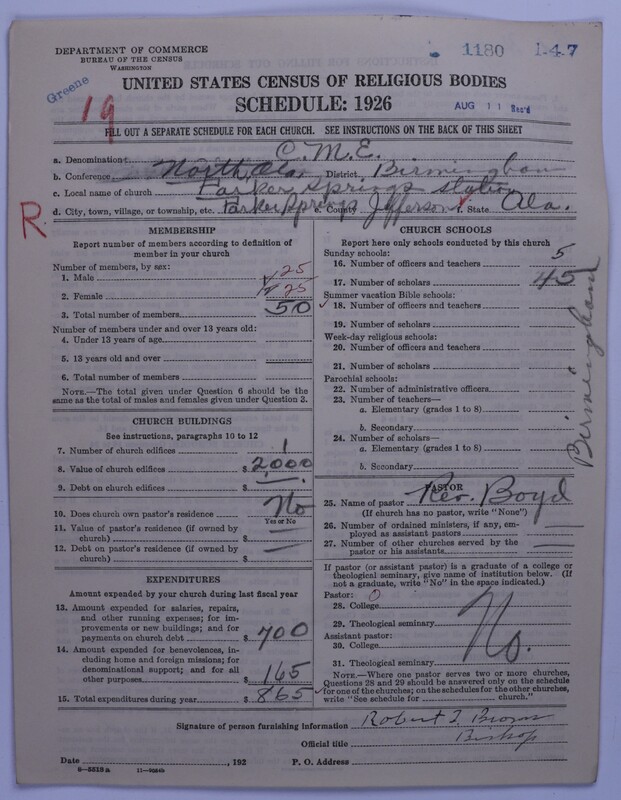 DEPARTMENT OF COMMERCE
BUREAU OF THE CENSUS
WASHINGTON
1180 1-4-7
Greene
19
UNITED STATES CENSUS OF RELIGIOUS BODIES
SCHEDULE: 1926
AUG 11 Rec'd
FILL OUT A SEPARATE SCHEDULE FOR EACH CHURCH. SEE INSTRUCTIONS ON THE BACK OF THIS SHEET
a. Denomination C.M.E.
b. Conference North Ala. District Birmingham
c. Local name of church Parker Springs Station
d. City, town, village, or township, etc. Parker Springs e. County Jefferson f. State Ala.
R
MEMBERSHIP
Report number of members according to definition of
member in your church
Number of members, by sex:
1. Male 25
2. Female 25
3. Total number of members 50
Number of members under and over 13 years old:
4. Under 13 years of age
5. 13 years old and over
6. Total number of members
NOTE.—The total given under Question 6 should be the
same as the total of males and females given under Question 3.
CHURCH BUILDINGS
See instructions, paragraphs 10 to 12
7. Number of church edifices 1
8. Value of church edifices $ 2,000
9. Debt on church edifices $
10. Does church own pastor's residence? No
Yes or No
11. Value of pastor's residence (if owned by
church) $
12. Debt on pastor's residence (if owned by
church) $
EXPENDITURES
Amount expended by your church during last fiscal year
13. Amount expended for salaries, repairs,
and other running expenses; for im-
provements or new buildings; and for
payments on church debt $ 700
14. Amount expended for benevolences, in-
cluding home and foreign missions; for
denominational support; and for all
other purposes $ 165
15. Total expenditures during year $ 865
CHURCH SCHOOLS
Report here only schools conducted by this church
Sunday schools:
16. Number of officers and teachers 5
17. Number of scholars 45
Summer vacation Bible schools:
18. Number of officers and teachers
19. Number of scholars
Week-day religious schools:
20. Number of officers and teachers
21. Number of scholars
Parochial schools:
22. Number of administrative officers
23. Number of teachers—
a. Elementary (grades 1 to 8)
b. Secondary
24. Number of scholars—
a. Elementary (grades 1 to 8)
b. Secondary
Birmingham
PASTOR
25. Name of pastor Rev. Boyd
(If church has no pastor, write "None")
26. Number of ordained ministers, if any, em-
ployed as assistant pastors
27. Number of other churches served by the
pastor or his assistants
If pastor (or assistant pastor) is a graduate of a college or
theological seminary, give name of institution below. (If
not a graduate, write "No" in the space indicated.)
Pastor: 0
28. College
29. Theological seminary No.
Assistant pastor:
30. College
31. Theological seminary
NOTE.—Where one pastor serves two or more churches,
Questions 28 and 29 should be answered only on the schedule
for one of the churches; on the schedules for the other churches,
write "See schedule for church."
Signature of person furnishing information Robert T. Brown
Official title Bishop
Date , 192 P. O. Address
8—5513a